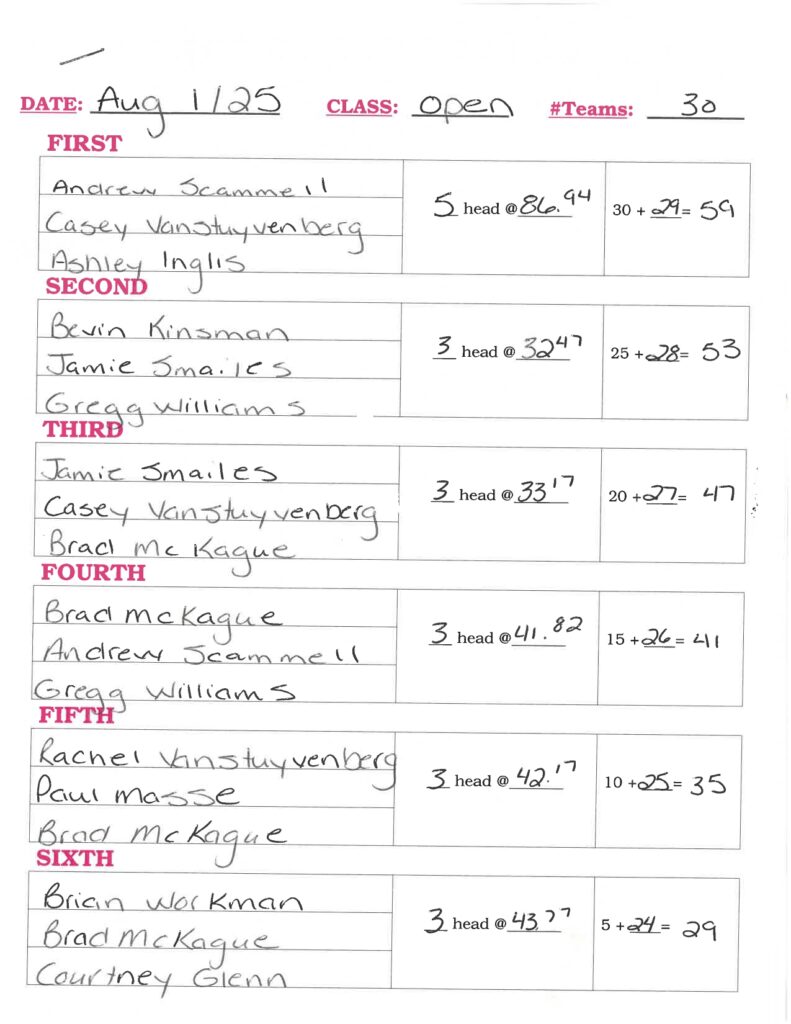 DATE: Aug 1/25 CLASS: open #Teams: 30
FIRST
Andrew Scammell
Casey Vanstuyvenberg 5 head @ 86.94 30 + 29 = 59
Ashley Inglis
SECOND
Bevin Kinsman
Jamie Smailes 3 head @ 32 47 25 + 28 = 53
Gregg Williams
THIRD
Jamie Smailes
Casey Vanstuyvenberg 3 head @ 33 17 20 + 27 = 47
Brad McKague
FOURTH
Brad McKague
Andrew Scammell 3 head @ 41.82 15 + 26 = 41
Gregg Williams
FIFTH
Rachel Vanstuyvenberg
Paul Masse 3 head @ 42.17 10 + 25 = 35
Brad McKague
SIXTH
Brian Workman
Brad McKague 3 head @ 43.77 5 + 24 = 29
Courtney Glenn